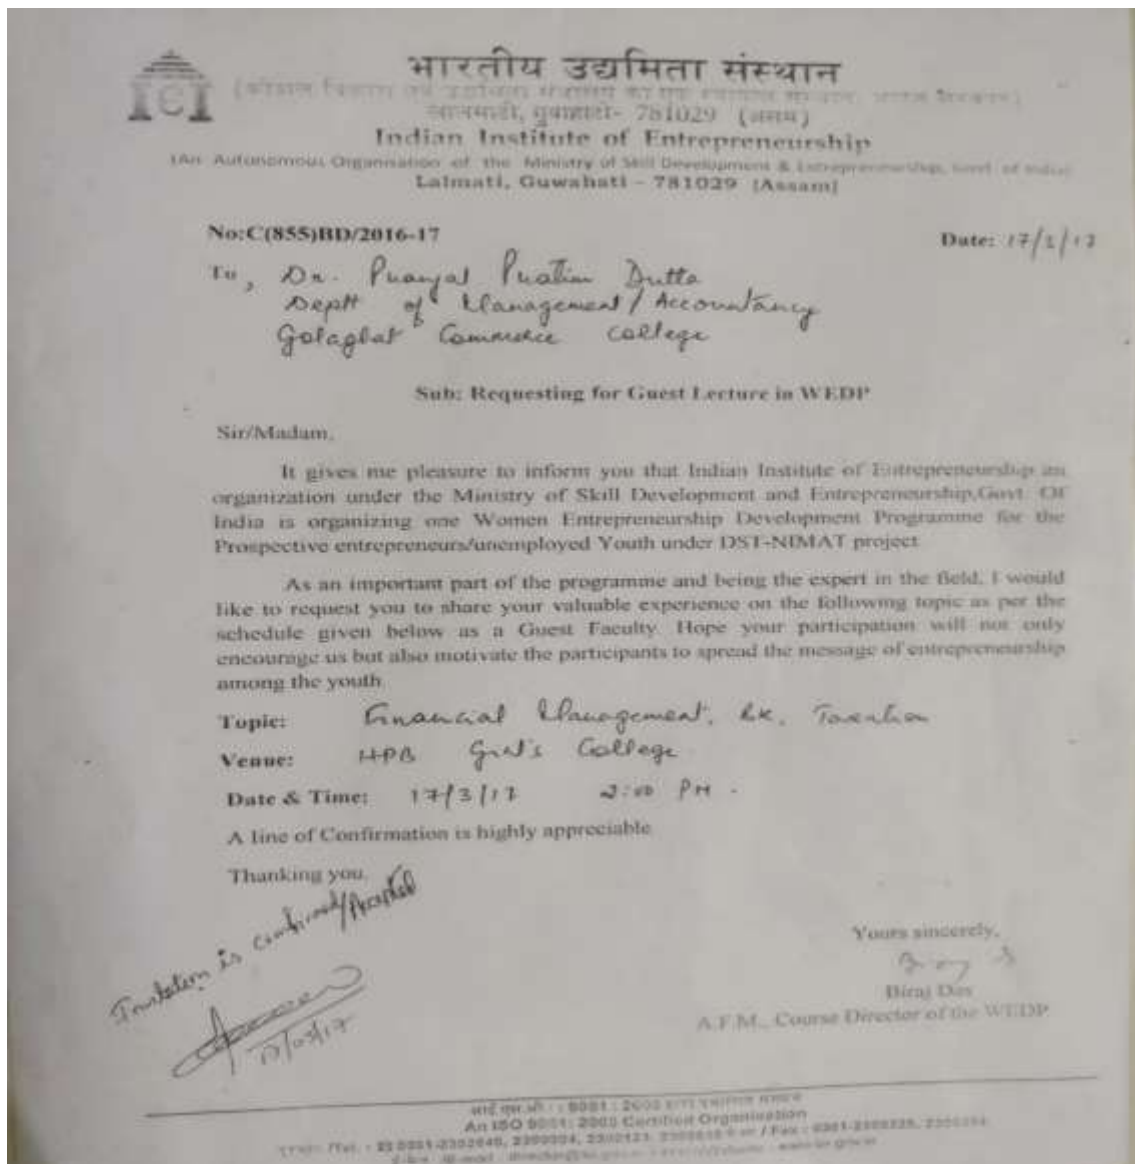 भारतीय उद्यमिता संस्थान
लालमाटी, गुवाहाटी- 781029 (असम)
IEI
Indian Institute of Entrepreneurship
(An Autonomous Organisation of the Ministry of Skill Development & Entrepreneurship, Govt. of India)
Lalmati, Guwahati - 781029 (Assam)
No:C(855)BD/2016-17
Date: 17/3/17
To, Dr. Pranjal Pratim Dutta
Deptt of Management/Accountancy
Golaghat Commerce College
Sub: Requesting for Guest Lecture in WEDP
Sir/Madam,
It gives me pleasure to inform you that Indian Institute of Entrepreneurship an
organization under the Ministry of Skill Development and Entrepreneurship,Govt. Of
India is organizing one Women Entrepreneurship Development Programme for the
Prospective entrepreneurs/unemployed Youth under DST-NIMAT project
As an important part of the programme and being the expert in the field, I would
like to request you to share your valuable experience on the following topic as per the
schedule given below as a Guest Faculty. Hope your participation will not only
encourage us but also motivate the participants to spread the message of entrepreneurship
among the youth
Topic: Financial Management, BK, Taxation
Venue: HPB Girl's College
Date & Time: 17/3/17 2:00 PM.
A line of Confirmation is highly appreciable
Thanking you,
Invitation is confirmed/Accepted
17/03/17
Yours sincerely,
Biraj Das
A.F.M., Course Director of the WEDP
An ISO 9001: 2000 Certified Organisation